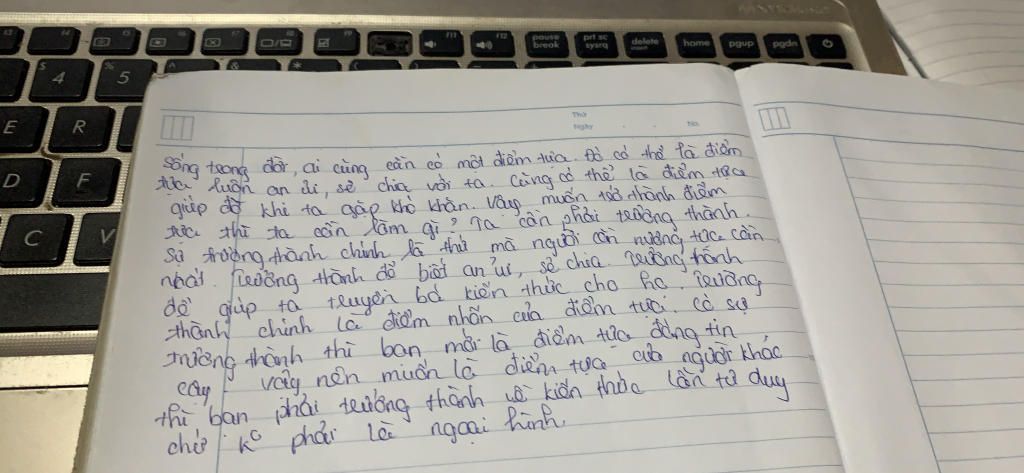 F9
F11
F12
pause break
prt sc sysrq
delete insert
home
pgup
pgdn
$ 4
% 5
^
&
*
(
E
R
D
F
C
V
Thứ
Ngày
No.
Sống trong đời, ai cũng cần có một điểm tựa. Đó có thể là điểm
tựa luôn an ủi, sẻ chia với ta. Cũng có thể là điểm tựa
giúp đỡ khi ta gặp khó khăn. Vậy muốn trở thành điểm
tựa thì ta cần làm gì? Ta cần phải trưởng thành.
Sự trưởng thành chính là thứ mà người cần nương tựa cần
nhất. Trưởng thành để biết an ủi, sẻ chia trưởng thành
để giúp ta truyền bá kiến thức cho họ. Trưởng
thành chính là điểm nhấn của điểm tựa. Có sự
trưởng thành thì bạn mới là điểm tựa đáng tin
cậy vậy nên muốn là điểm tựa của người khác
thì bạn phải trưởng thành về kiến thức lẫn tư duy
chứ ko phải là ngoại hình.